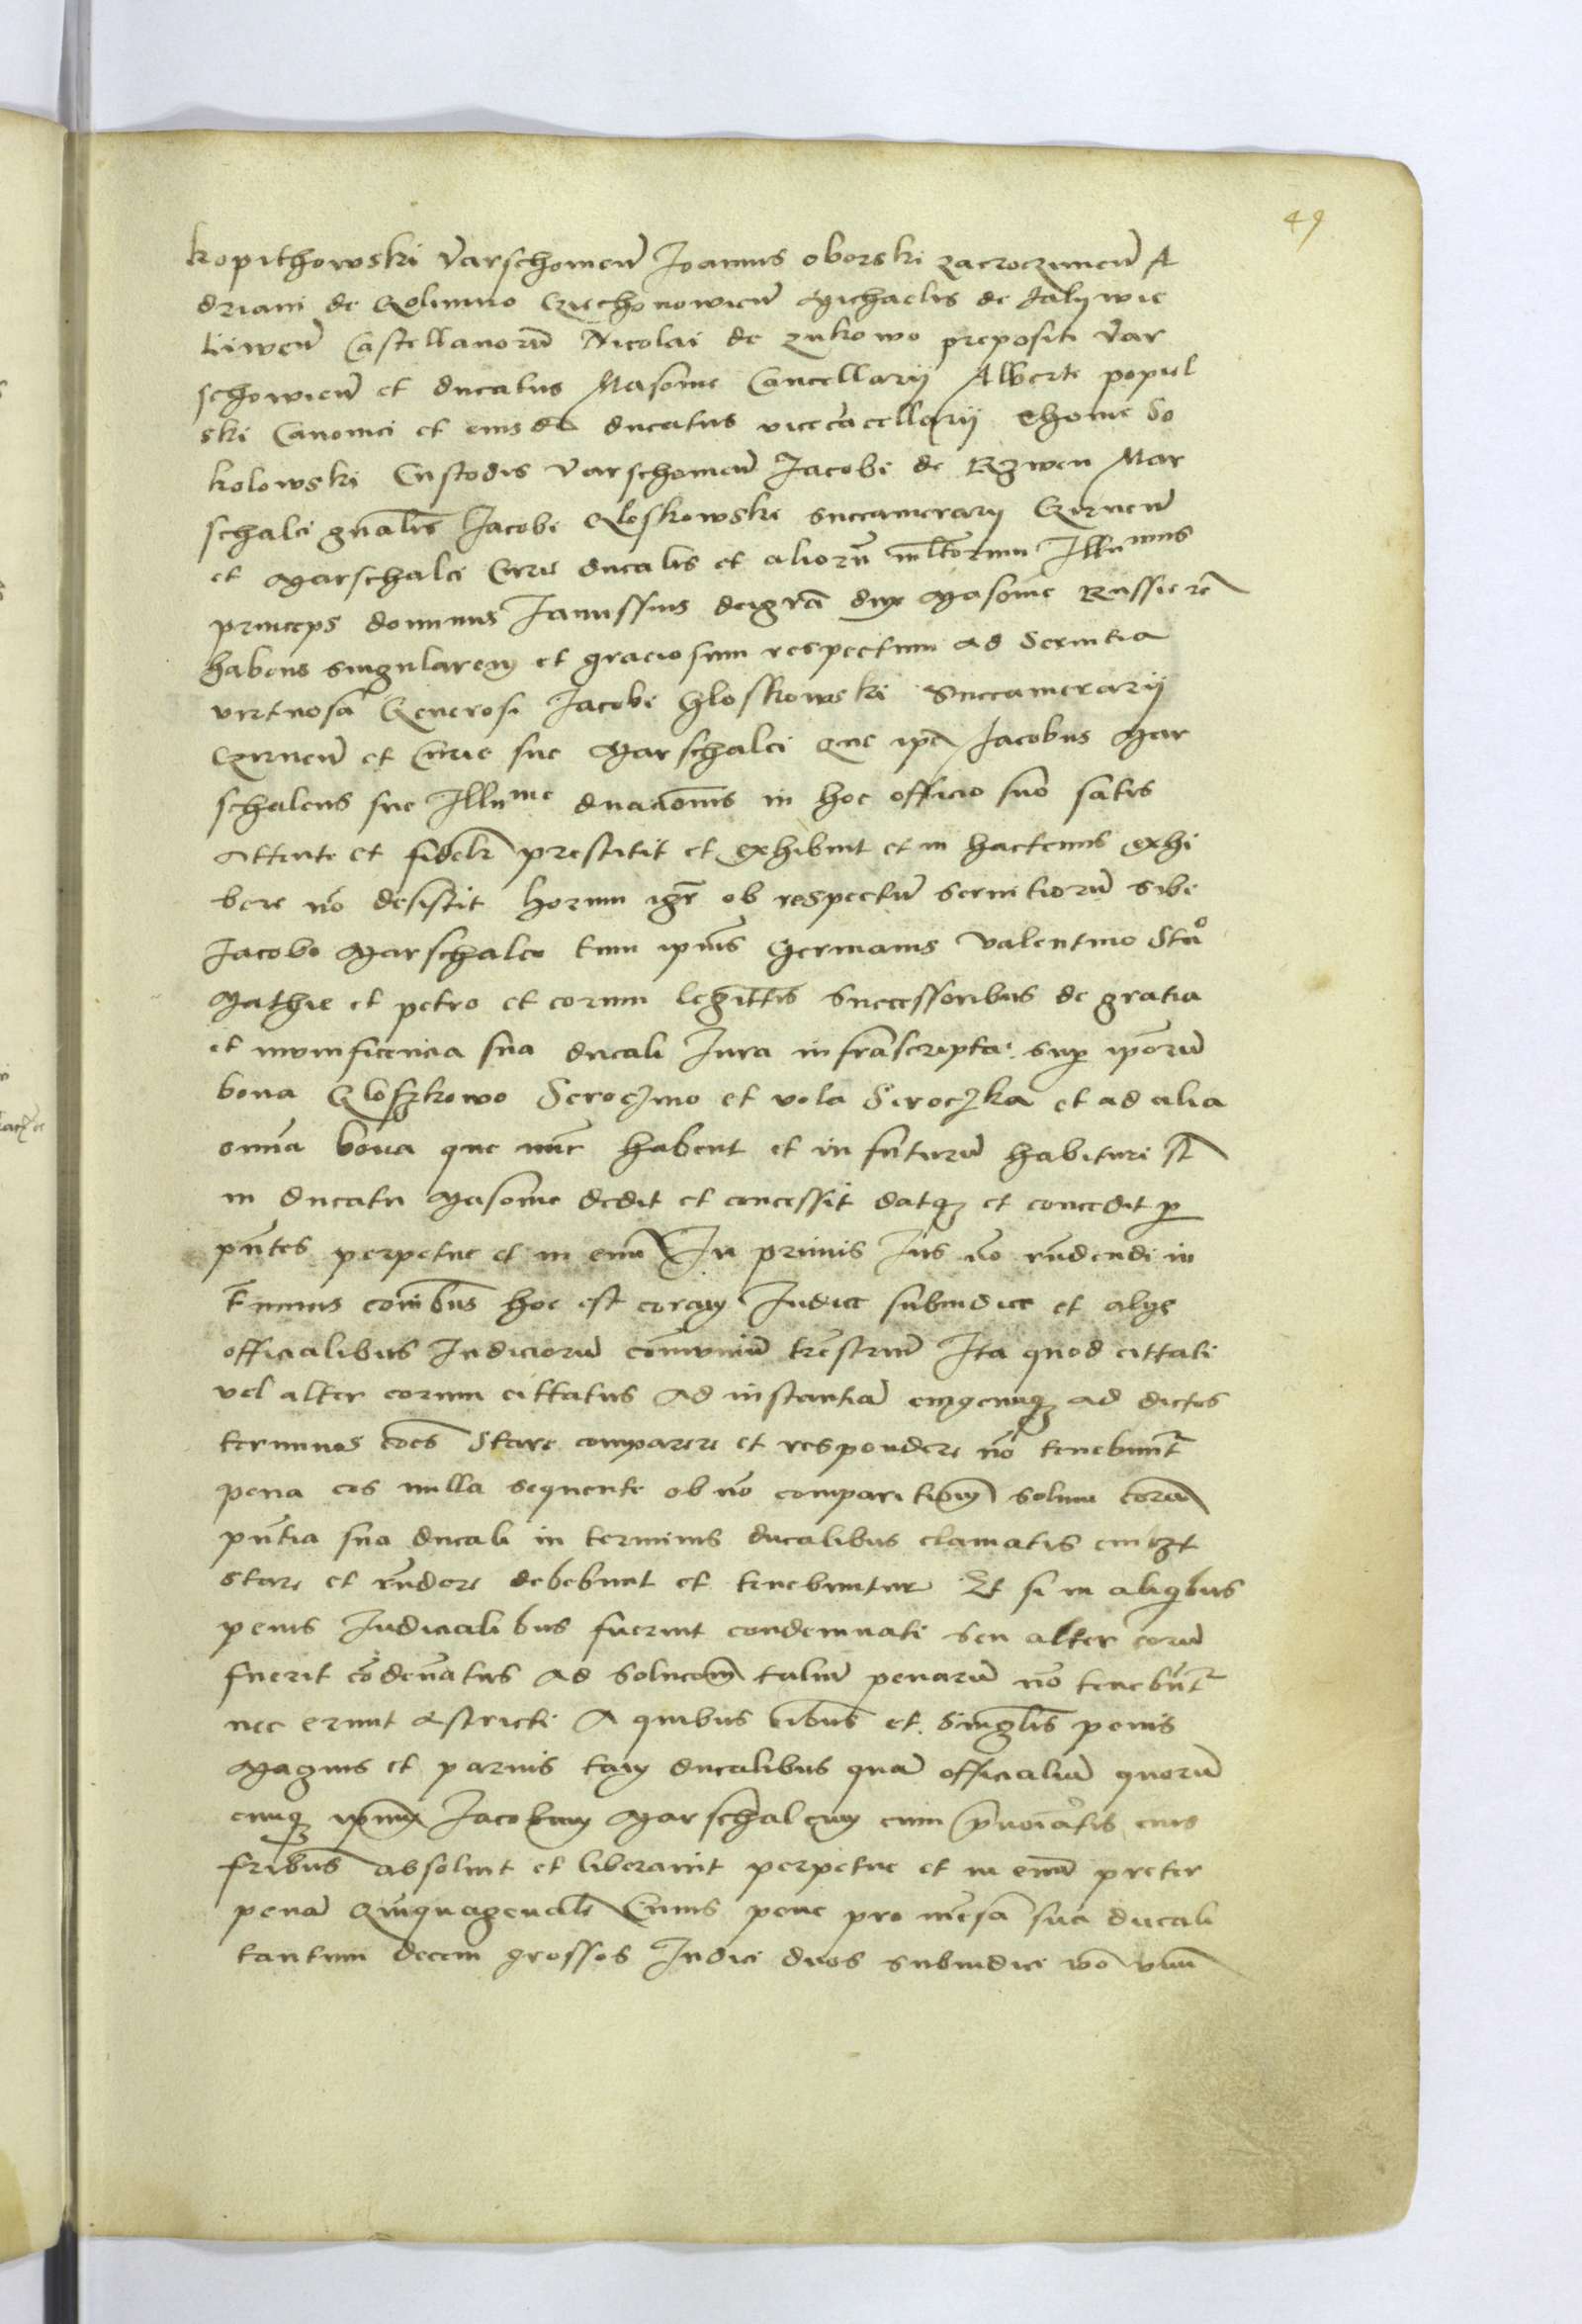 49
kopithowski Varschouien̄ Joannis oborski zacroczimen̄ A
driani de Golimno Cziechonowien̄ Michaelis de Jalywie
liwen̄ Castellanorū Nicolai de zukowo prepositi Var
schowien̄ et ducatus Masouie Cancellarij Alberti popiel
ski Canonici et eiusdē ducatus vicecācellarij Thome So
kolowski Custodis Varschouien̄ Jacobi de Rzwen Mar
schalci gn̄alis Jacobi Gloskowski succamerarij Czirnen̄
et Marschalci Curie ducalis et aliorū ml̄torum Illumus
princeps dominus Janussius deigrā dux Masouie Russie rc̄
habens singularem et graciosum respectum ad Seruitia
virtuosā Generosi Jacobi Gloskowski Succamerarij
Czirnen̄ et Curie sue Marschalci que ip̄e Jacobus Mar
schalcus sue Illume dn̄ac̄onis in hoc officio suo satis
Attente et fidelr̄ prestitit et exhibuit et in hactenus exhi
bere nō desistit horum igr̄ ob respectū seruitiorū sibi
Jacobo Marschalco tum ip̄ius Germanis Valentino Stāo
Mathie et petro et eorum legittīs Successoribus de gratia
et munificencia sua ducali Jura infrāscripta sup ip̄orū
bona Gloszkowo Seroczino et vola Seroczka et ad alia
omīa bona que nūc habent et in futurū habituri sūt
in ducatu Masouie dedit et concessit datqz et concedit p
pn̄tes perpetue et in euū In primis Jus nō rn̄dendi in
t̄minis com̄ibus hoc est coram Judice subiudice et alijs
officialibus Judiciorū com̄uniū tr̄estriū Ita quod cittati
vel alter eorum cittatus Ad instantiā cuiuscunqz ad dictos
terminos cōes Stare comparere et respondere nō tenebunt̄
pena eos nulla sequente ob nō comparitionem solum corā
pn̄tia sua ducali in terminis ducalibus clamatis
stare et rn̄dere debebunt et tenebuntur Et si in aliqbus
penis Judicialibus fuerint condemnati seu alter eorū
fuerit cōdēnatus Ad soluc̄onē taliū penarū nō tenebūt̄
nec erunt astricti A quibus oībus et Singl̄is penis
Magnis et paruis tam ducalibus quā officialiū quorū
cunqz ip̄um Jacobum Marschalcum cum p̄noīatis eius
fribus absoluit et liberauit perpetue et in euū preter
penā Qūiquagenalē Cuius pene pro mēsa sua ducali
tantum decem grossos Judici duos subiudici vō vnū